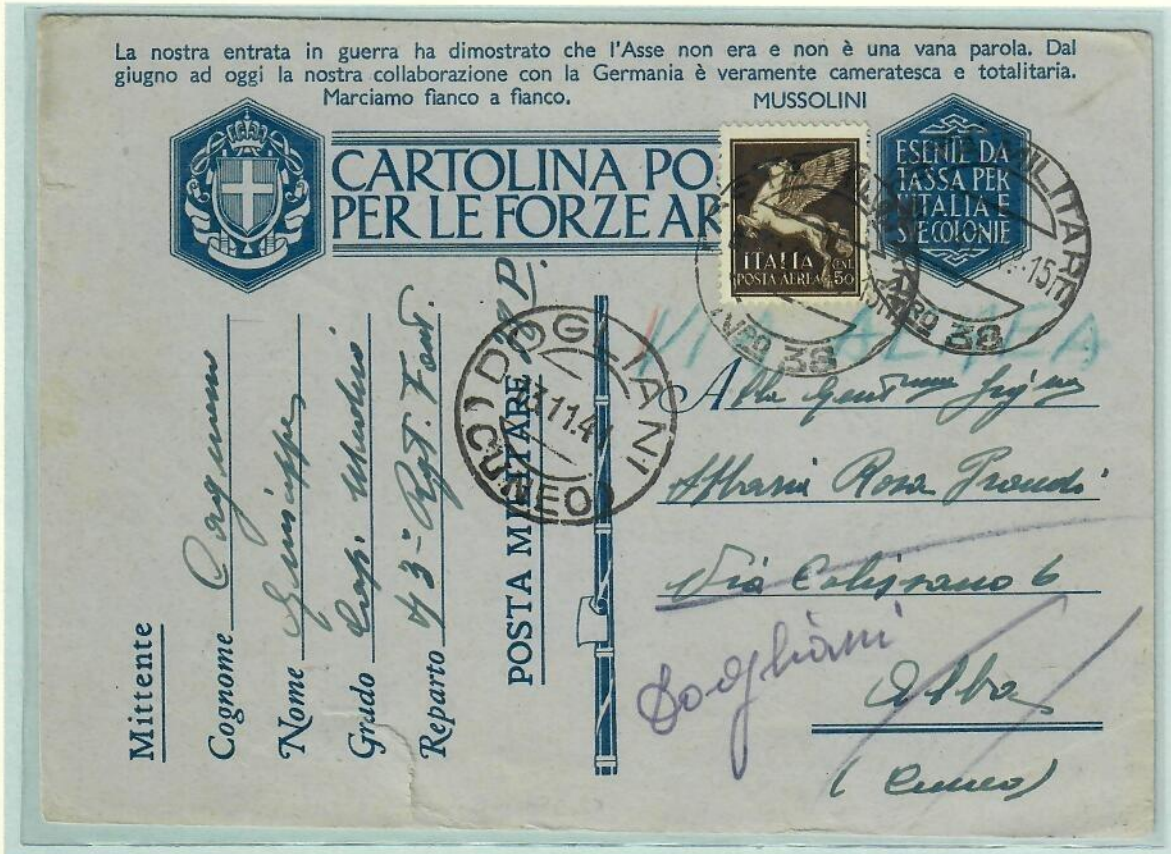 La nostra entrata in guerra ha dimostrato che l'Asse non era e non è una vana parola. Dal
giugno ad oggi la nostra collaborazione con la Germania è veramente cameratesca e totalitaria.
Marciamo fianco a fianco. MUSSOLINI
CARTOLINA PO
PER LE FORZE AR
ITALIA
POSTA AEREA
CENT.
50
ESENTE DA
TASSA PER
L'ITALIA E
SUE COLONIE
MILITARE
38
38
VIA AEREA
DOGLIANI
(CUNEO)
Mittente
Cognome
Nome Giuseppe
Grado
Reparto 43° Rgt. Fant.
POSTA MILITARE
Alla
Rosa
Via 6
Alba
(Cuneo)
Dogliani